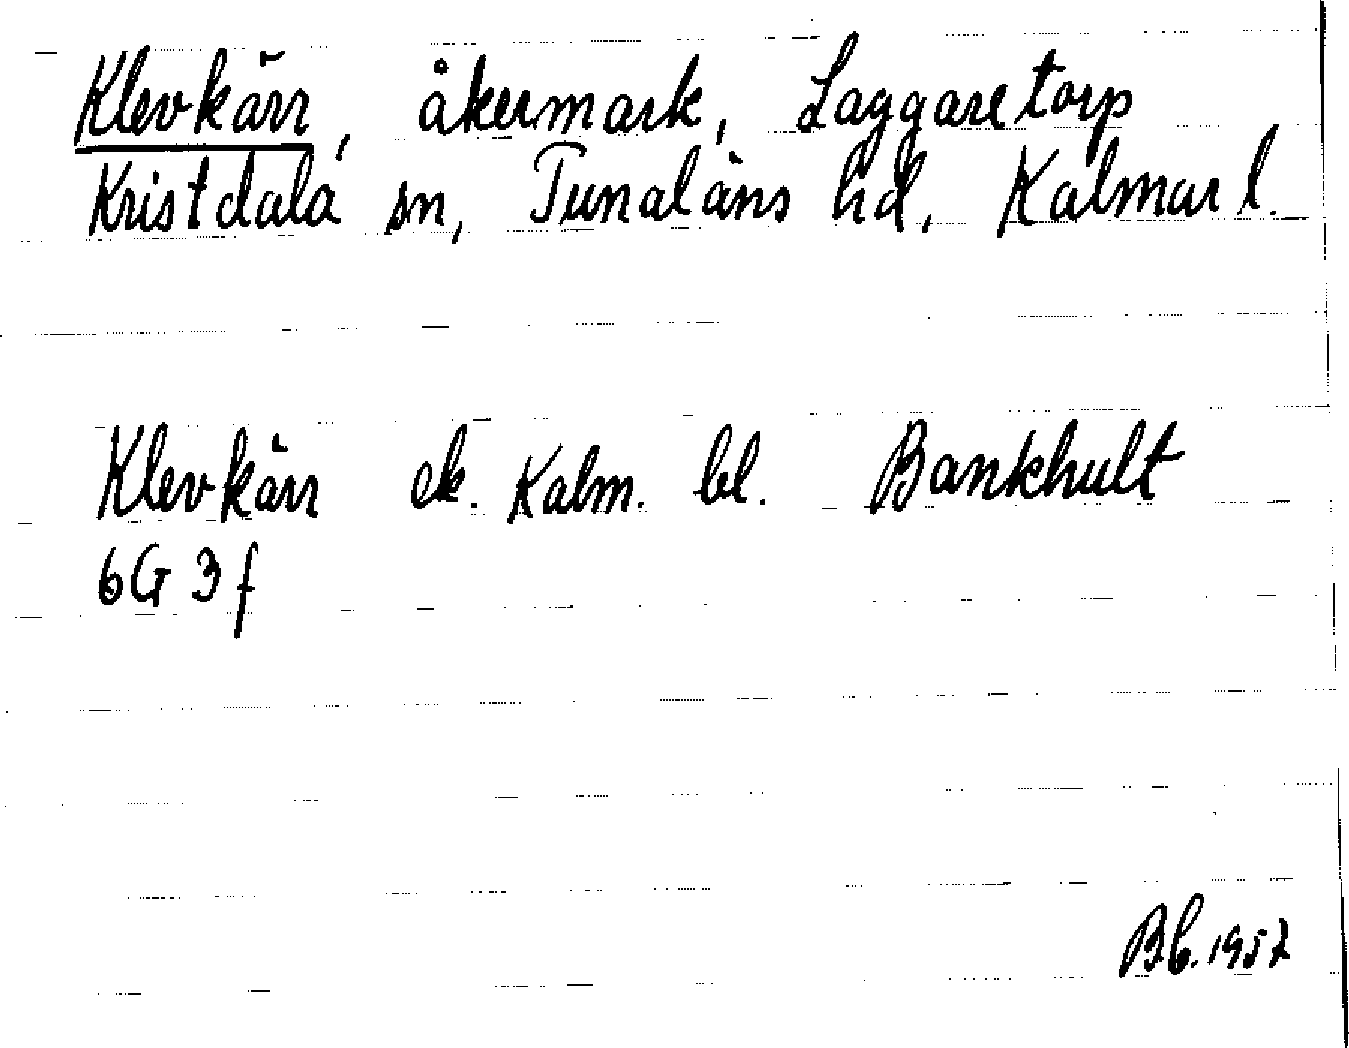 Klevkärr, åkermark, Laggaretorp
Kristdala sn, Tunaläns hd, Kalmar l.
Klevkärr ek. Kalm. bl. Bankhult
6G 3f
Bb. 1957